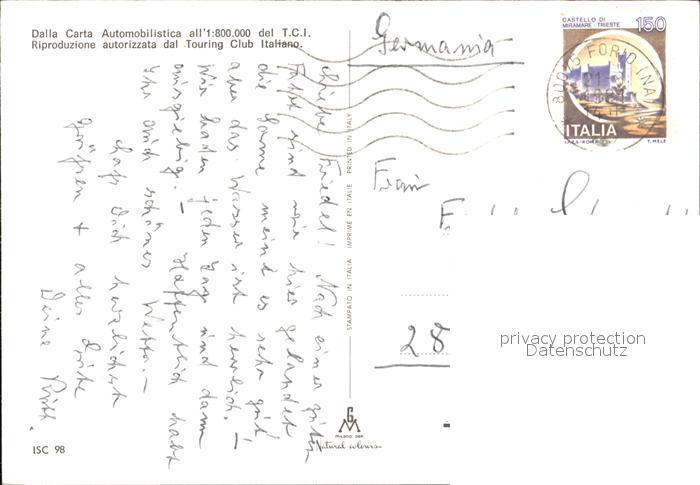 Dalla Carta Automobilistica all'1:800.000 del T.C.I.
Riproduzione autorizzata dal Touring Club Italiano.
Germania
CASTELLO DI
MIRAMARE - TRIESTE
150
80075 FORIO (NA)
ITALIA
I.P.S.-ROMA
T. MELE
Liebe Friedel! Nach einer guten
Fahrt sind wir hier gelandet
die Sonne meint es sehr gut
aber das Wasser ist herrlich. –
Wir baden jeden Tag und dann
ausgiebig. – Hoffentlich habt
Ihr auch schönes Wetter. –
Lass Dich herzlichst
grüßen + alles Gute
Deine Ruth.
STAMPATO IN ITALIA IMPRIMÉ EN ITALIE PRINTED IN ITALY
Frau
F.
28
privacy protection
Datenschutz
GM
MILANO
Natural colours
ISC 98